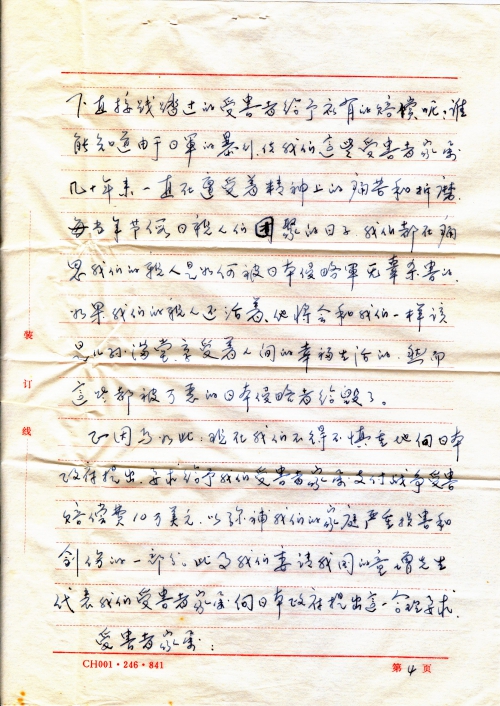 下直接践踏过的受害者给予应有的赔偿呢？谁
能知道由于日军的暴行，使我们这些受害者家属
几十年来一直在遭受着精神上的痛苦和折磨。
每当年节假日亲人们团聚的日子我们都在痛
思我们的亲人是如何被日本侵略军无辜杀害的，
如果我们的亲人还活着、他将会和我们一样该
是儿孙满堂，享受着人间的幸福生活的。然而
这些都被可恶的日本侵略者给毁了。
正因为如此，现在我们不得不慎重地向日本
政府提出，要求给予我们受害者家属支付战争受害
赔偿费10万美元，以弥补我们的家庭严重损害和
创伤的一部分。此事我们委请我国的童增先生
代表我们受害者家属向日本政府提出这一合理要求。
受害者家属：
装
订
线
CH001·246·841
第4页